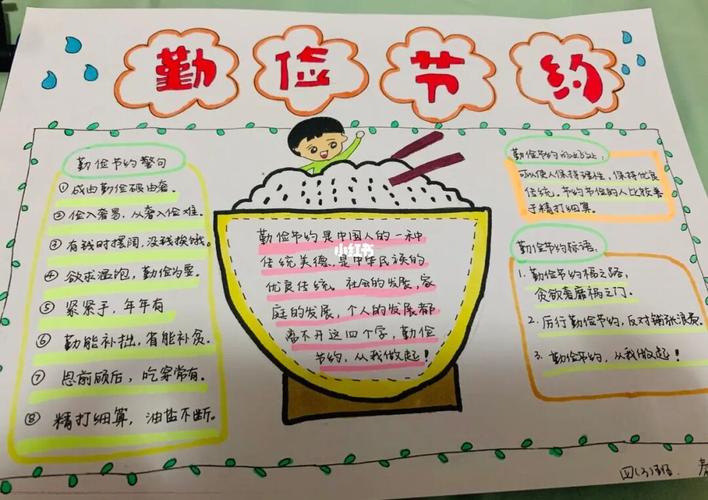 勤俭节约
勤俭节约警句
①成由勤俭破由奢。
②俭入奢易,从奢入俭难。
③有钱时摆阔,没钱挨饿。
④欲求温饱,勤俭为要。
⑤紧紧手,年年有
⑥勤能补拙,有能补贫。
⑦思前顾后,吃穿常有。
⑧精打细算,油盐不断。
勤俭节约是中国人的一种
传统美德,是中华民族的
优良传统。社会的发展,家
庭的发展,个人的发展都
离不开这四个字,勤俭
节约,从我做起!
小红书
勤俭节约的
可以使人保持理性,保持优良
传统。节约节俭的人比较善
于精打细算。
勤俭节约标语。
1.勤俭节约福之路,
贪欲奢靡祸之门。
2.厉行勤俭节约,反对铺张浪费。
3.勤俭节约,从我做起!
四(3)班